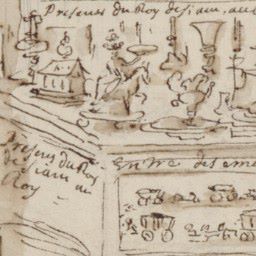 Presens du Roy de siam, au
Presens du Roy
de siam au
Roy
Entre des am